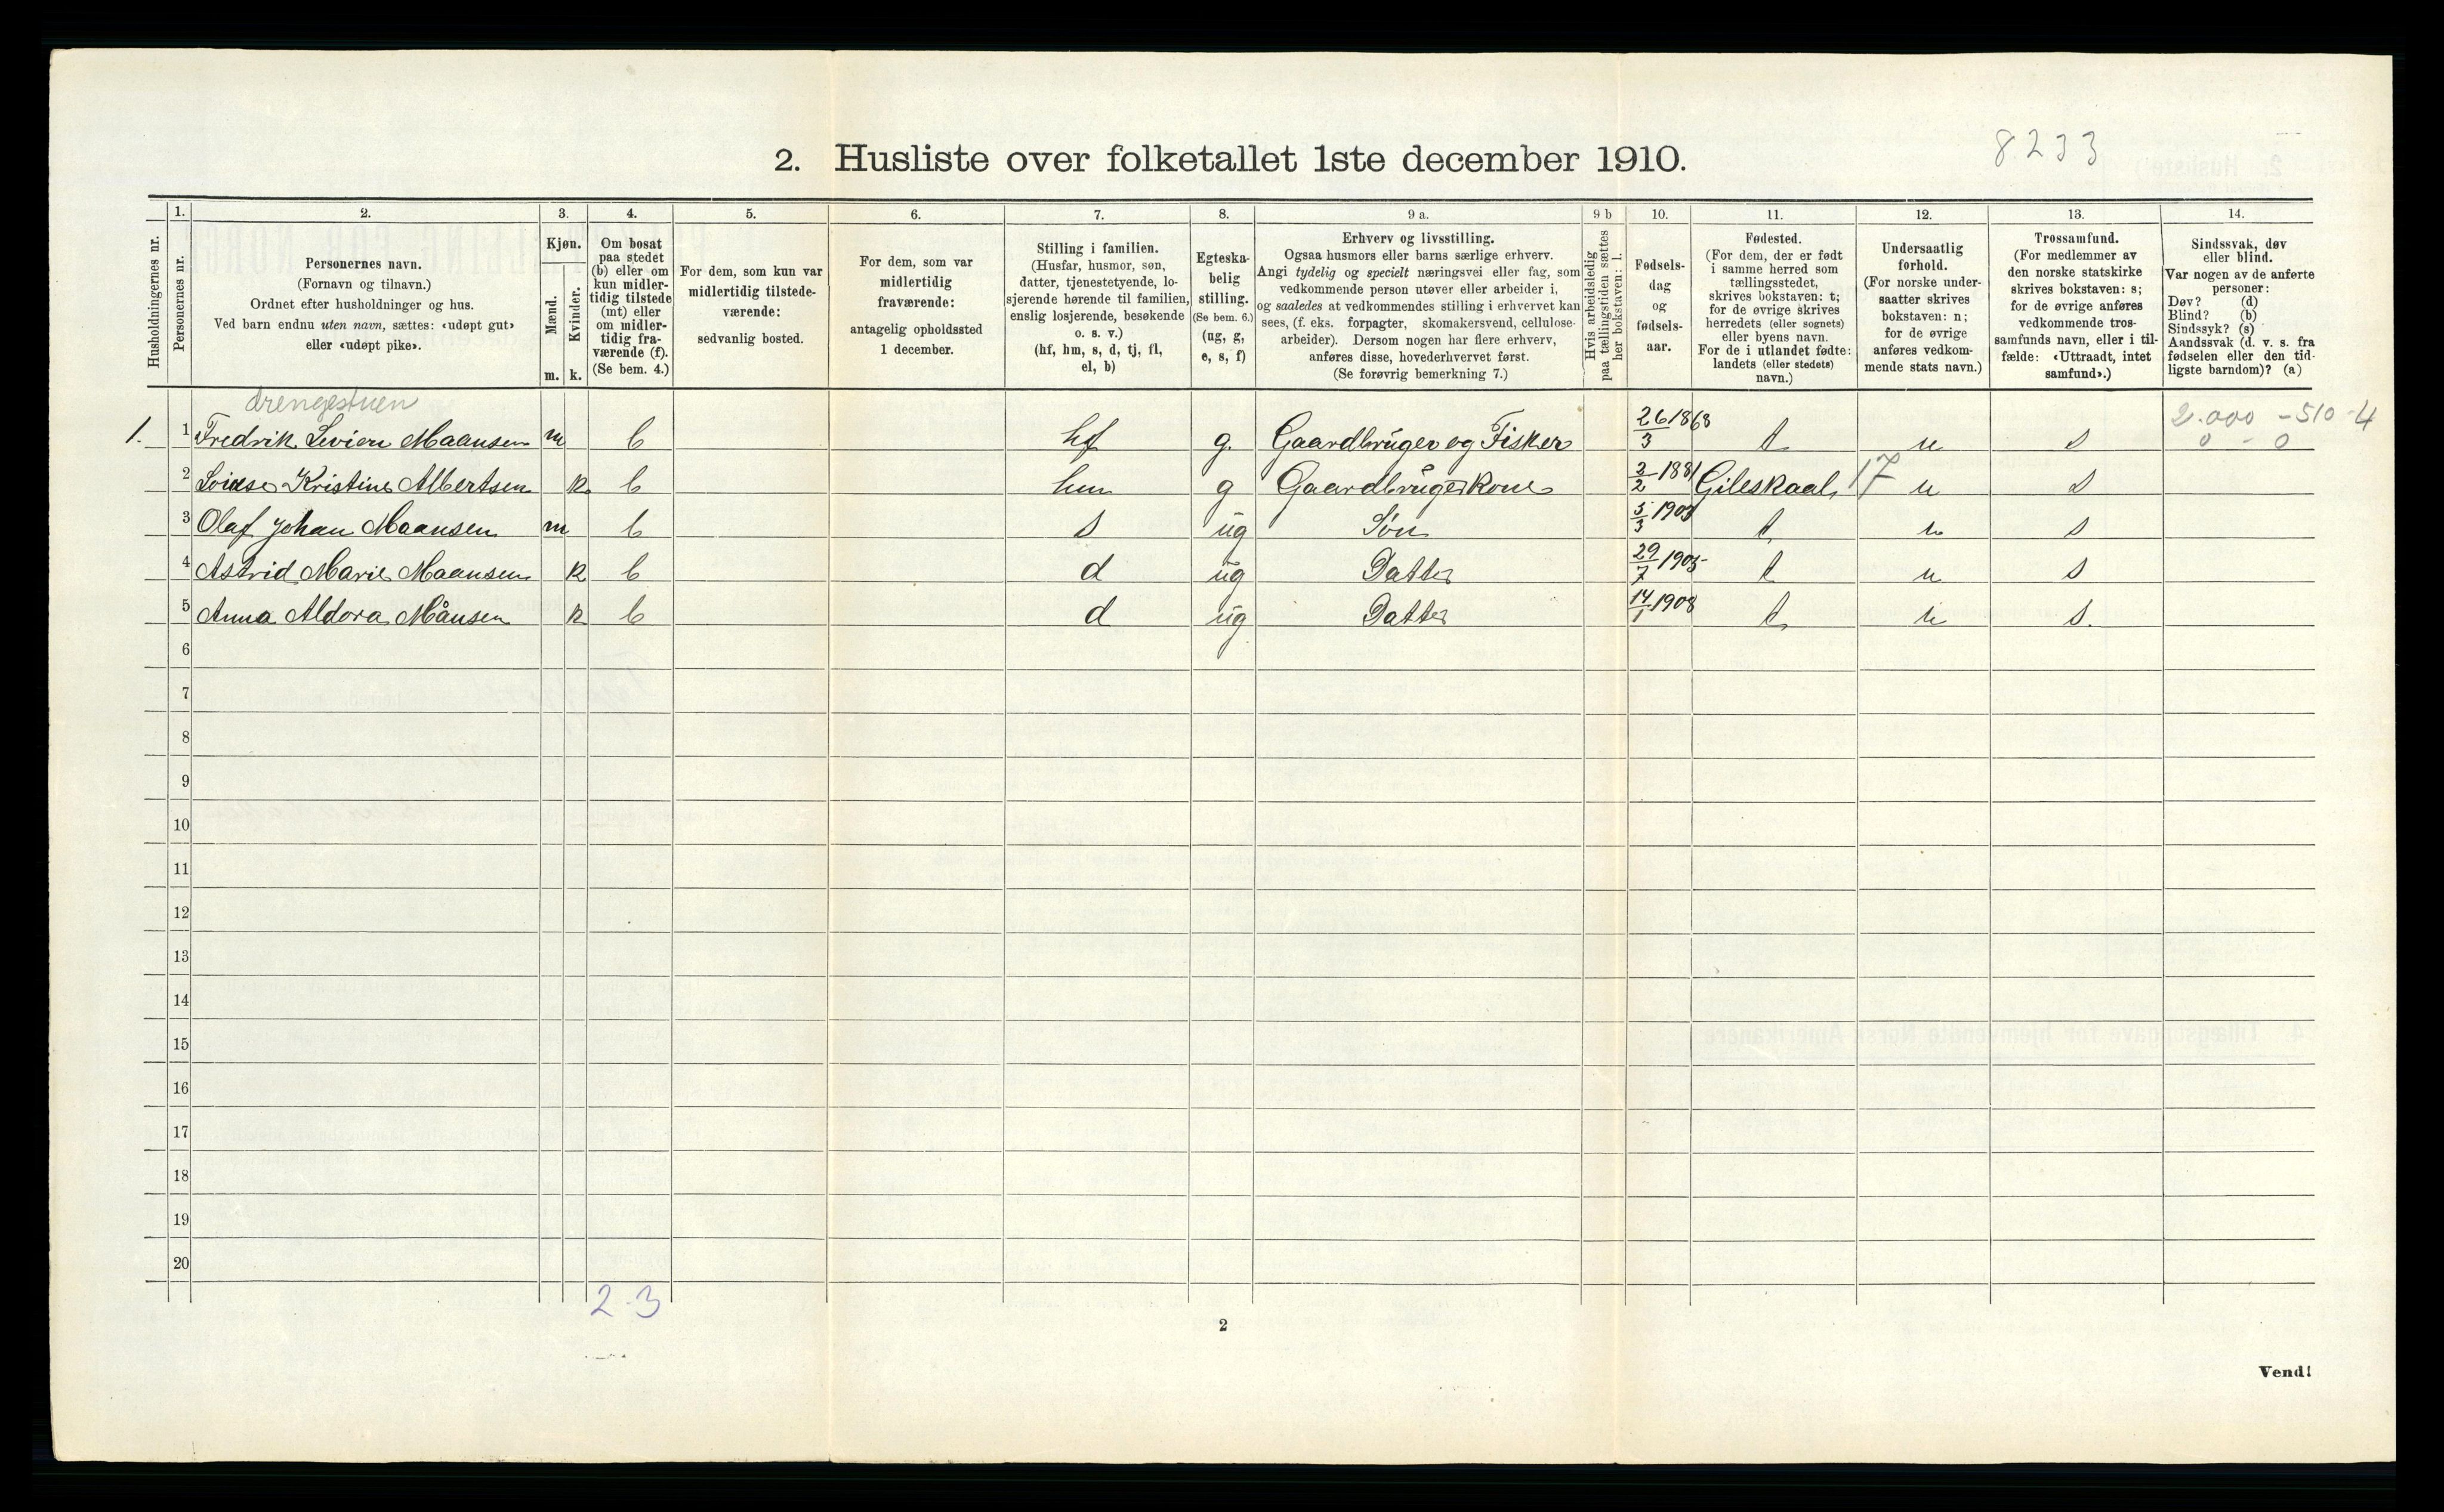 8233
2. Husliste over folketallet 1ste december 1910.
Husholdningernes nr.
1.
Personernes nr.
2.
Personernes navn.
(Fornavn og tilnavn.)
Ordnet efter husholdninger og hus.
Ved barn endnu uten navn, sættes: «udøpt gut»
eller «udøpt pike».
3.
Kjøn.
Mænd.
Kvinder.
m. k.
4.
Om bosat
paa stedet
(b) eller om
kun midler-
tidig tilstede
(mt) eller
om midler-
tidig fra-
værende (f).
(Se bem. 4.)
5.
For dem, som kun var
midlertidig tilstede-
værende:
sedvanlig bosted.
6.
For dem, som var
midlertidig
fraværende:
antagelig opholdssted
1 december.
7.
Stilling i familien.
(Husfar, husmor, søn,
datter, tjenestetyende, lo-
sjerende hørende til familien,
enslig losjerende, besøkende
o. s. v.)
(hf, hm, s, d, tj, fl,
el, b)
8.
Egteska-
belig
stilling.
(Se bem. 6.)
(ug, g,
e, s, f)
9 a.
Erhverv og livsstilling.
Ogsaa husmors eller barns særlige erhverv.
Angi tydelig og specielt næringsvei eller fag, som
vedkommende person utøver eller arbeider i,
og saaledes at vedkommendes stilling i erhvervet kan
sees, (f. eks. forpagter, skomakersvend, cellulose-
arbeider). Dersom nogen har flere erhverv,
anføres disse, hovederhvervet først.
(Se forøvrig bemerkning 7.)
9 b
Hvis arbeidsledig
paa tællingstiden sættes
her bokstaven: l.
10.
Fødsels-
dag
og
fødsels-
aar.
11.
Fødested.
(For dem, der er født
i samme herred som
tællingsstedet,
skrives bokstaven: t;
for de øvrige skrives
herredets (eller sognets)
eller byens navn.
For de i utlandet fødte:
landets (eller stedets)
navn.)
12.
Undersaatlig
forhold.
(For norske under-
saatter skrives
bokstaven: n;
for de øvrige
anføres vedkom-
mende stats navn.)
13.
Trossamfund.
(For medlemmer av
den norske statskirke
skrives bokstaven: s;
for de øvrige anføres
vedkommende tros-
samfunds navn, eller i til-
fælde: «Uttraadt, intet
samfund».)
14.
Sindssvak, døv
eller blind.
Var nogen av de anførte
personer:
Døv? (d)
Blind? (b)
Sindssyk? (s)
Aandssvak (d. v. s. fra
fødselen eller den tid-
ligste barndom)? (a)
drengestuen
2.000 - 510 - 4
0 - 0
1. 1 Fredrik Maansen m b hf g. Gaardbrüger og Fisker 26/3 1868 t n s
2 Kristine Albertsen k b hm g Gaardbrügerkone 2/2 1881 Gileskaal 17 n s
3 Olaf Johan Maansen m b s ug Søn 5/3 1903 t n s
4 Astrid Marie Maansen k b d ug Datter 29/7 1905 t n s
5 Anna Aldora Månsen k b d ug Datter 14/1 1908 t n s.
6
7
8
9
10
11
12
13
14
15
16
17
18
19
20
2-3
2
Vend!